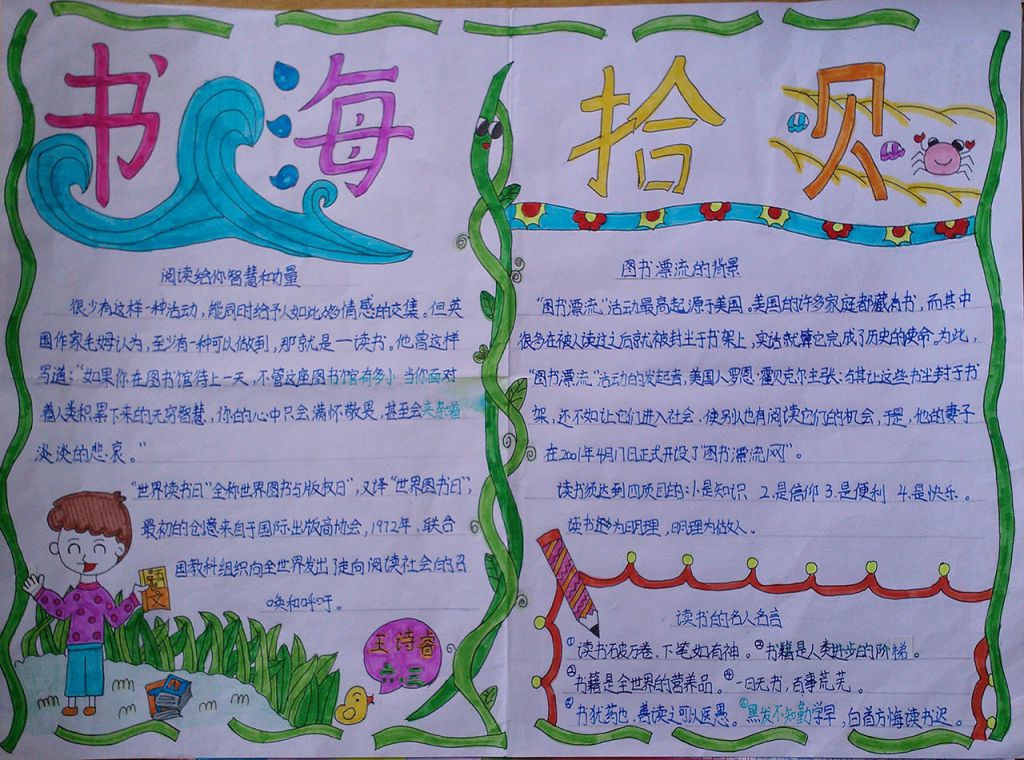 书海拾贝
阅读给你智慧和力量
很少有这样一种活动，能同时给予人如此多情感的交集。但英
国作家毛姆认为，至少有一种可以做到，那就是一读书。他曾这样
写道："如果你在图书馆待上一天，不管这座图书馆有多小 当你面对
着人类积累下来的无穷智慧，你的心中只会满怀敬畏，甚至会夹杂着
淡淡的悲哀。"
"世界读书日"全称世界图书与版权日"，又译"世界图书日"，
最初的创意来自于国际出版商协会，1972年，联合
国教科组织向全世界发出走向阅读社会的召
唤和呼吁。
王诗睿
六.三
图书漂流的背景
"图书漂流"活动最高起源于美国。美国的许多家庭都藏有书，而其中
很多在被人读过之后就被封于书架上，实话就算它完成了历史的使命。为此，
"图书漂流"活动的发起者，美国人罗恩·霍贝克尔主张：与其让这些书尘封于书
架，还不如让它们进入社会，使别人也有阅读它们的机会，于是，他的妻子
在2001年4月17日正式开设了"图书漂流网"。
读书须达到四项目的：1.是知识 2.是信仰 3.是便利 4.是快乐。
读书为明理，明理为做人。
读书的名人名言
①读书破万卷，下笔如有神。②书籍是人类进步的阶梯。
③书籍是全世界的营养品。④一日无书，百事荒芜。
⑤书犹药也，善读之可以医愚。⑥黑发不知勤学早，白首方悔读书迟。